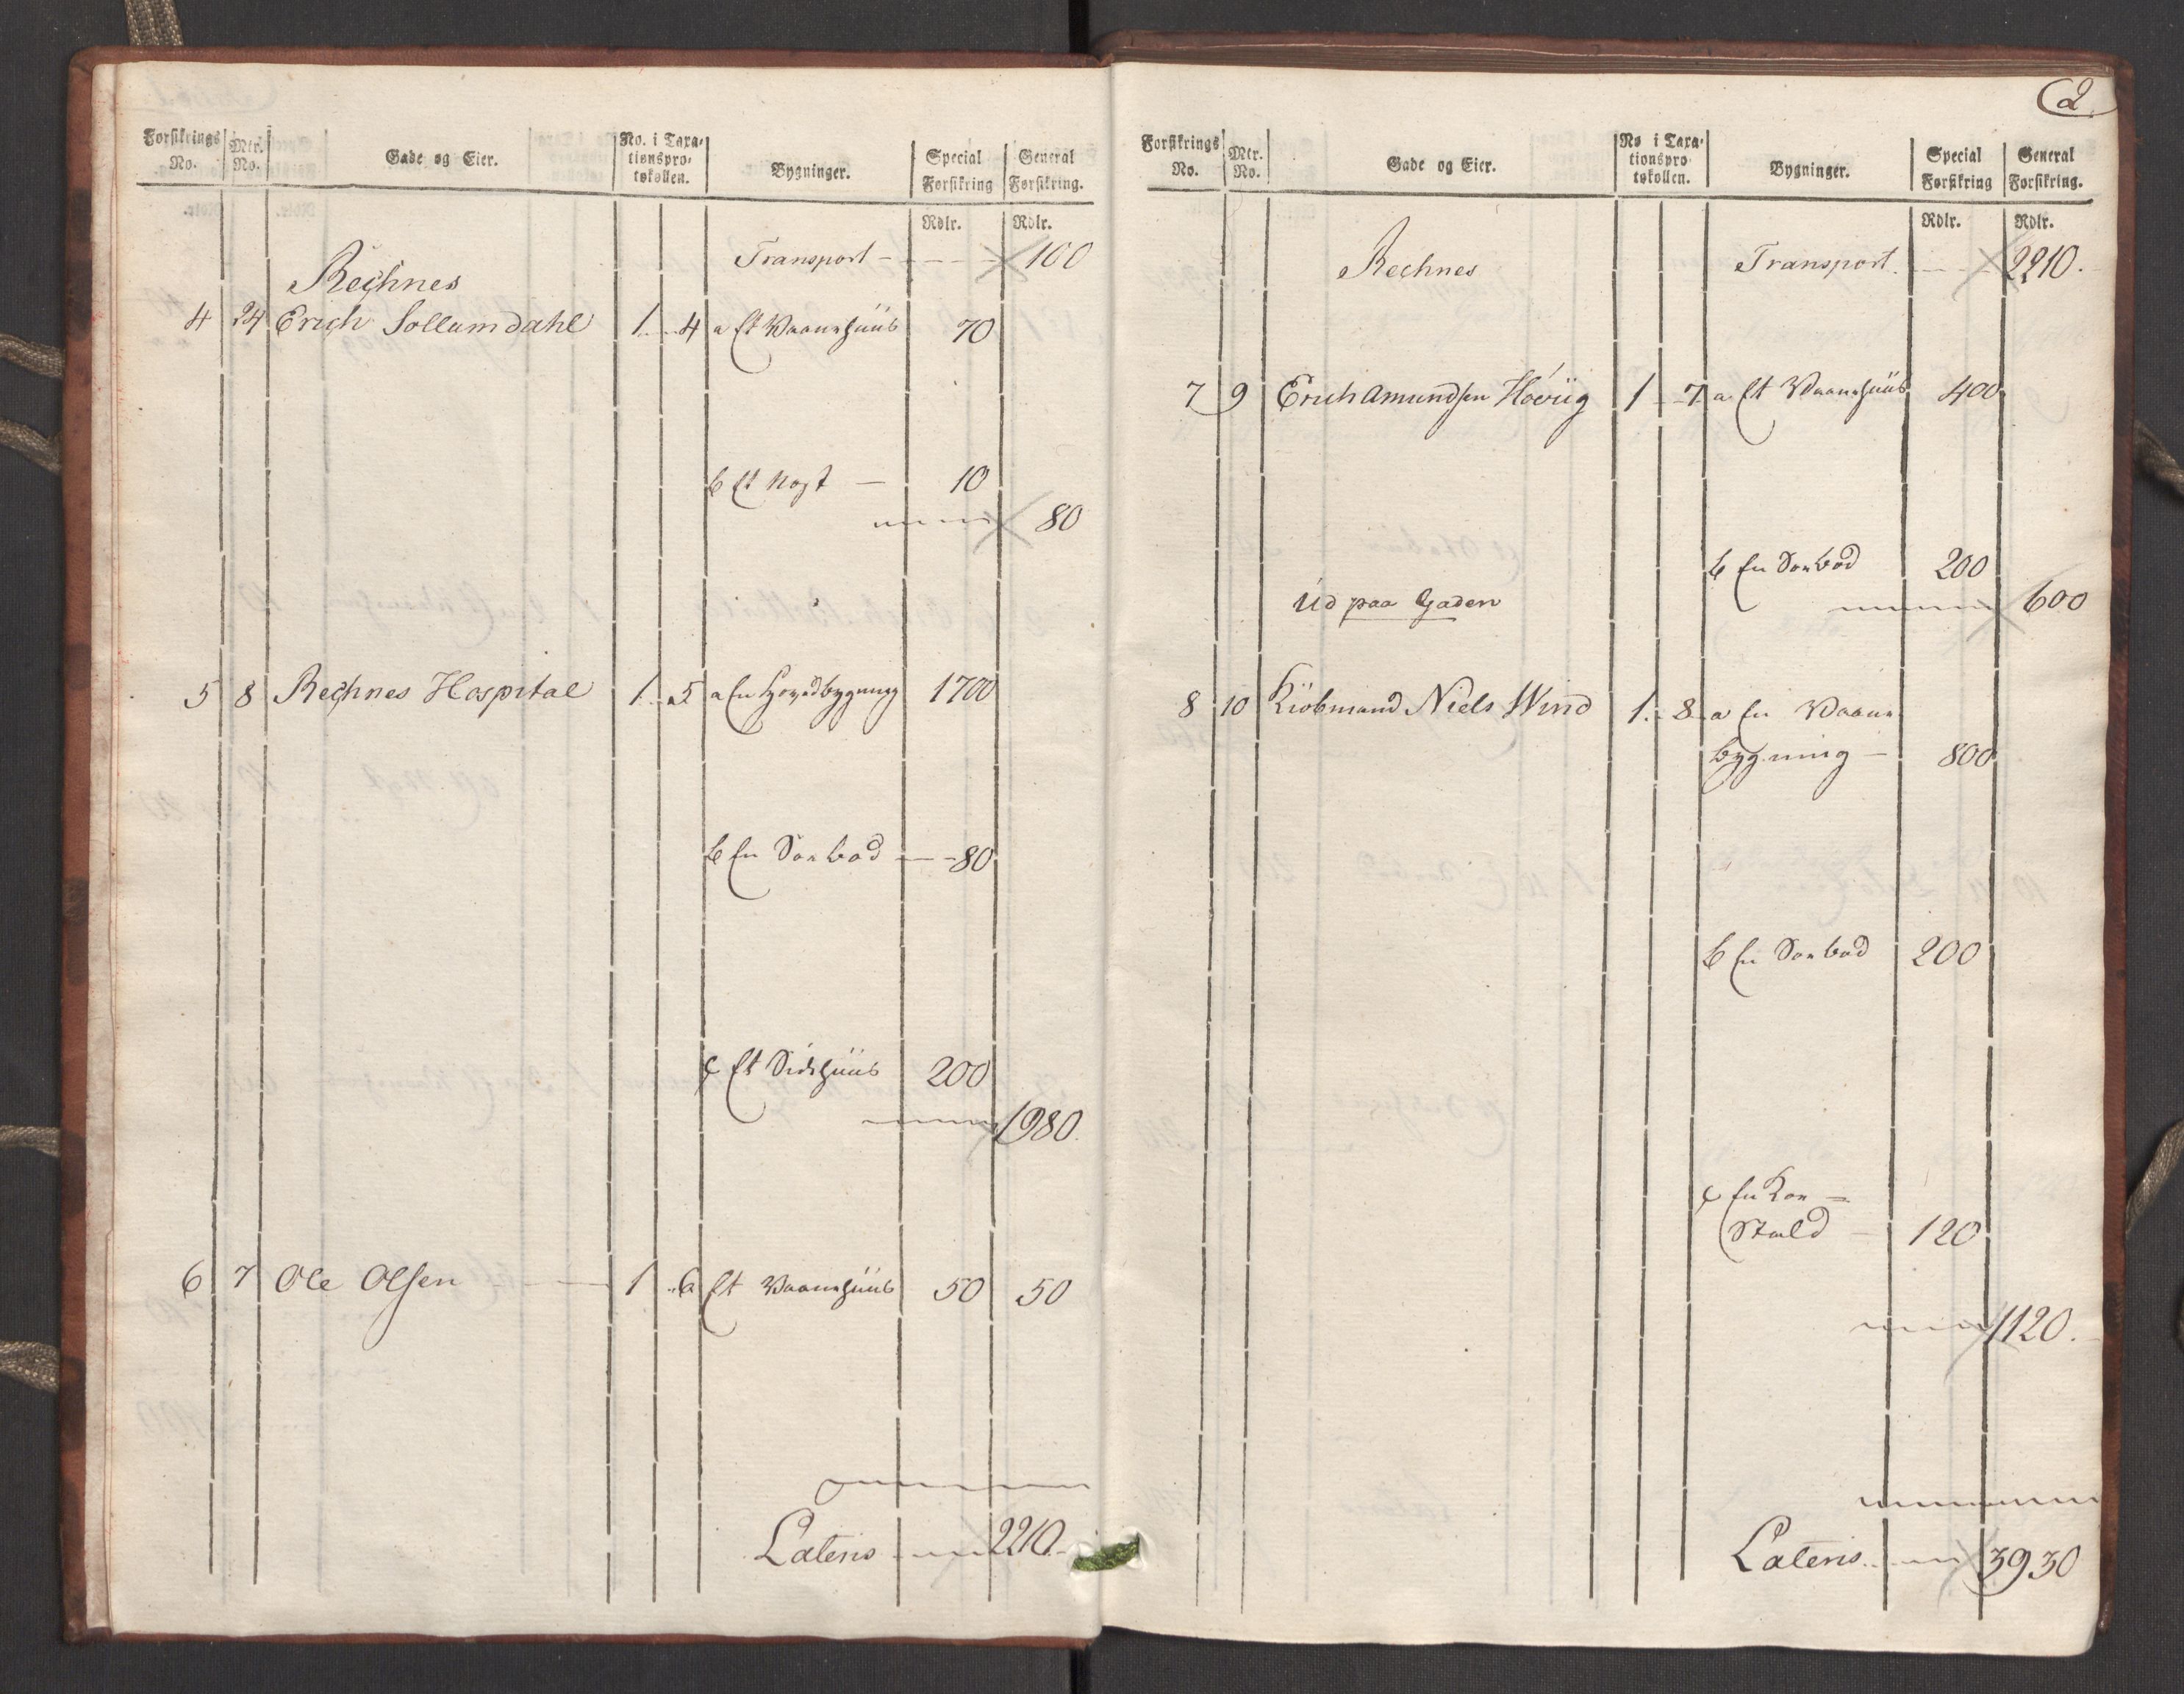 Forsikrings No. Mtr. No. Gade og Eier. No. i Taxationsprotokollen. Bygninger. Special Forsikring General Forsikring.
Rdlr. Rdlr.
Transport - 100
Rechnes
4 24 Erich Sollumdahl 1 4 a Et Vaaenhuus 70
b Et Nost — 10
80
5 8 Rechnes Hospital 1 5 a En Hovedbygning 1700
b En Søebod — 80
c Et Sidehuus 200
1980.
6 7 Ole Olsen 1 6 Et Vaaenhuus 50 50
Lateris 2210.
2.
Forsikrings No. Mtr. No. Gade og Eier. No i Taxationsprotokollen. Bygninger. Special Forsikring General Forsikring.
Rdlr. Rdlr.
Rechnes Transport. 2210.
7 9 Erich Amundsen Høvig 1 7 a Et Vaaenhuus 400
b En Søebod 200
Ud paa Gaden 600
8 10 Kiøbmand Niels Wind 1. 8 a En Vaaen
bygning — 800
b En Søebod 200
c En Koe =
Stald — 120
1120.
Lateris. 3930